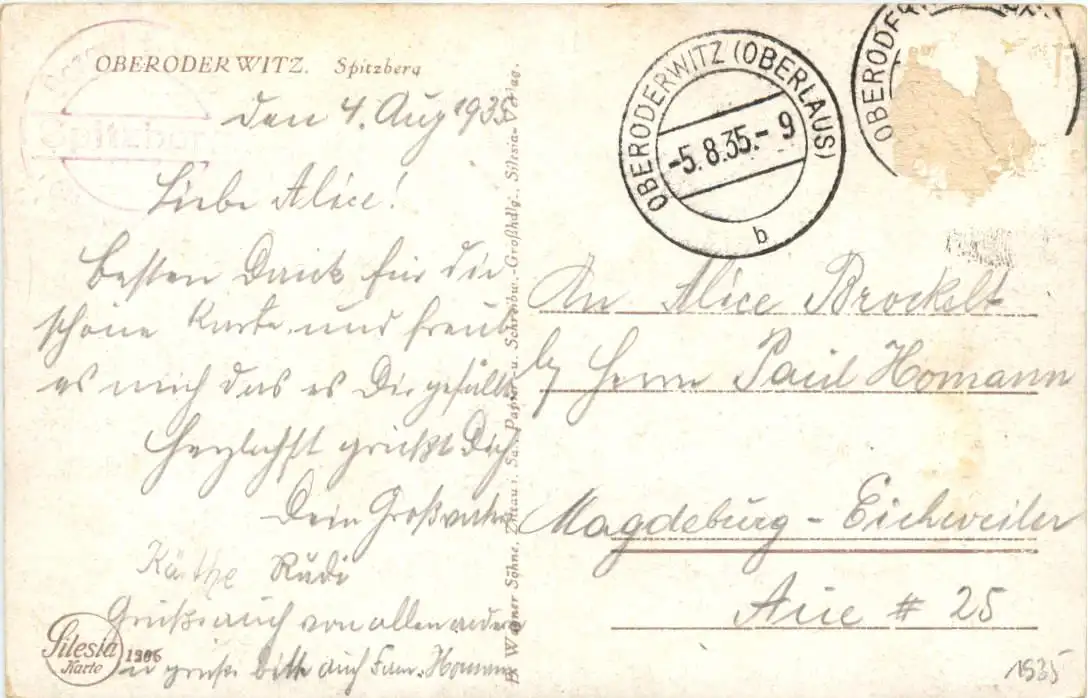 OBERODERWITZ. Spitzberg
den 4. Aug 1935
Liebe Alice!
Besten Dank für die
schöne Karte, und freut
es mich das es Dir gefällt
Herzlichst grüßt Dich
Dein Großvater
Käthe Rudi
Grüße auch von allen andern
u grüße bitte auch Fam. Homann
Silesia
Karte
1906
Wagner Söhne, Zittau i. Sa., Papier- u. Schreibw.-Großhdlg., Silesia-
OBERODERWITZ (OBERLAUS)
-5.8.35.- 9
b
An Alice Brockelt
b/ Herrn Paul Homann
Magdeburg - Eichweiler
Aue # 25
1935
Spitzber